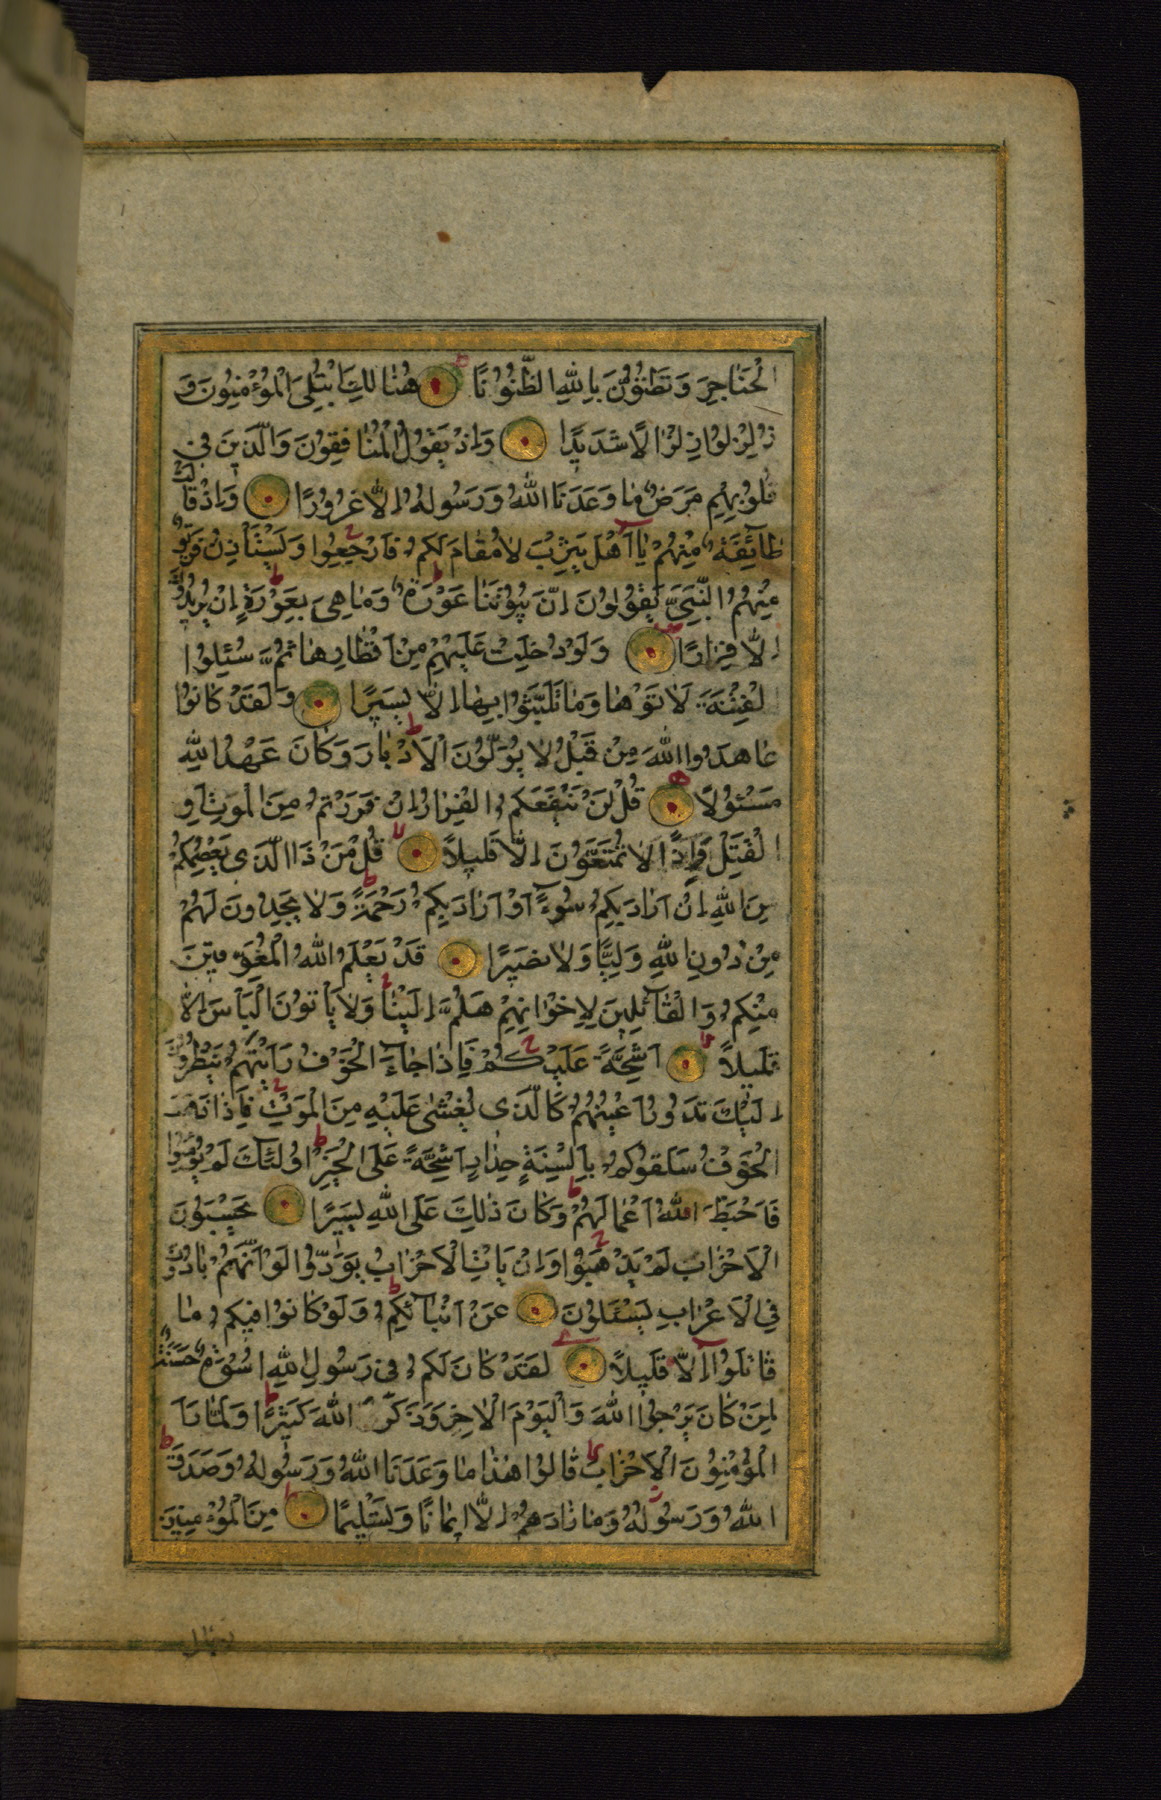 الْحَنَاجِرَ وَتَظُنُّونَ بِاللّٰهِ الظُّنُونَا هُنَالِكَ ابْتُلِىَ الْمُؤْمِنُونَ وَ
زُلْزِلُوا زِلْزَالًا شَدِيدًا وَاِذْ يَقُولُ الْمُنَافِقُونَ وَالَّذِينَ فِى
قُلُوبِهِمْ مَرَضٌ مَا وَعَدَنَا اللّٰهُ وَرَسُولُهُ اِلَّا غُرُورًا وَاِذْ قَالَتْ
طَائِفَةٌ مِنْهُمْ يَا اَهْلَ يَثْرِبَ لَا مُقَامَ لَكُمْ فَارْجِعُوا وَيَسْتَأْذِنُ فَرِيقٌ
مِنْهُمُ النَّبِىَّ يَقُولُونَ اِنَّ بُيُوتَنَا عَوْرَةٌ وَمَا هِىَ بِعَوْرَةٍ اِنْ يُرِيدُونَ
اِلَّا فِرَارًا وَلَوْ دُخِلَتْ عَلَيْهِمْ مِنْ اَقْطَارِهَا ثُمَّ سُئِلُوا
الْفِتْنَةَ لَاٰتَوْهَا وَمَا تَلَبَّثُوا بِهَا اِلَّا يَسِيرًا وَلَقَدْ كَانُوا
عَاهَدُوا اللّٰهَ مِنْ قَبْلُ لَا يُوَلُّونَ الْاَدْبَارَ وَكَانَ عَهْدُ اللّٰهِ
مَسْئُولًا قُلْ لَنْ يَنْفَعَكُمُ الْفِرَارُ اِنْ فَرَرْتُمْ مِنَ الْمَوْتِ اَوِ
الْقَتْلِ وَاِذًا لَا تُمَتَّعُونَ اِلَّا قَلِيلًا قُلْ مَنْ ذَا الَّذِى يَعْصِمُكُمْ
مِنَ اللّٰهِ اِنْ اَرَادَ بِكُمْ سُوءًا اَوْ اَرَادَ بِكُمْ رَحْمَةً وَلَا يَجِدُونَ لَهُمْ
مِنْ دُونِ اللّٰهِ وَلِيًّا وَلَا نَصِيرًا قَدْ يَعْلَمُ اللّٰهُ الْمُعَوِّقِينَ
مِنْكُمْ وَالْقَائِلِينَ لِاِخْوَانِهِمْ هَلُمَّ اِلَيْنَا وَلَا يَأْتُونَ الْبَأْسَ اِلَّا
قَلِيلًا اَشِحَّةً عَلَيْكُمْ فَاِذَا جَاءَ الْخَوْفُ رَاَيْتَهُمْ يَنْظُرُونَ
اِلَيْكَ تَدُورُ اَعْيُنُهُمْ كَالَّذِى يُغْشٰى عَلَيْهِ مِنَ الْمَوْتِ فَاِذَا ذَهَبَ
الْخَوْفُ سَلَقُوكُمْ بِاَلْسِنَةٍ حِدَادٍ اَشِحَّةً عَلَى الْخَيْرِ اُولٰئِكَ لَمْ يُؤْمِنُوا
فَاَحْبَطَ اللّٰهُ اَعْمَالَهُمْ وَكَانَ ذٰلِكَ عَلَى اللّٰهِ يَسِيرًا يَحْسَبُونَ
الْاَحْزَابَ لَمْ يَذْهَبُوا وَاِنْ يَأْتِ الْاَحْزَابُ يَوَدُّوا لَوْ اَنَّهُمْ بَادُونَ
فِى الْاَعْرَابِ يَسْئَلُونَ عَنْ اَنْبَائِكُمْ وَلَوْ كَانُوا فِيكُمْ مَا
قَاتَلُوا اِلَّا قَلِيلًا لَقَدْ كَانَ لَكُمْ فِى رَسُولِ اللّٰهِ اُسْوَةٌ حَسَنَةٌ
لِمَنْ كَانَ يَرْجُوا اللّٰهَ وَالْيَوْمَ الْاٰخِرَ وَذَكَرَ اللّٰهَ كَثِيرًا وَلَمَّا رَاَ
الْمُؤْمِنُونَ الْاَحْزَابَ قَالُوا هٰذَا مَا وَعَدَنَا اللّٰهُ وَرَسُولُهُ وَصَدَقَ
اللّٰهُ وَرَسُولُهُ وَمَا زَادَهُمْ اِلَّا اِيمَانًا وَتَسْلِيمًا مِنَ الْمُؤْمِنِينَ
رجال